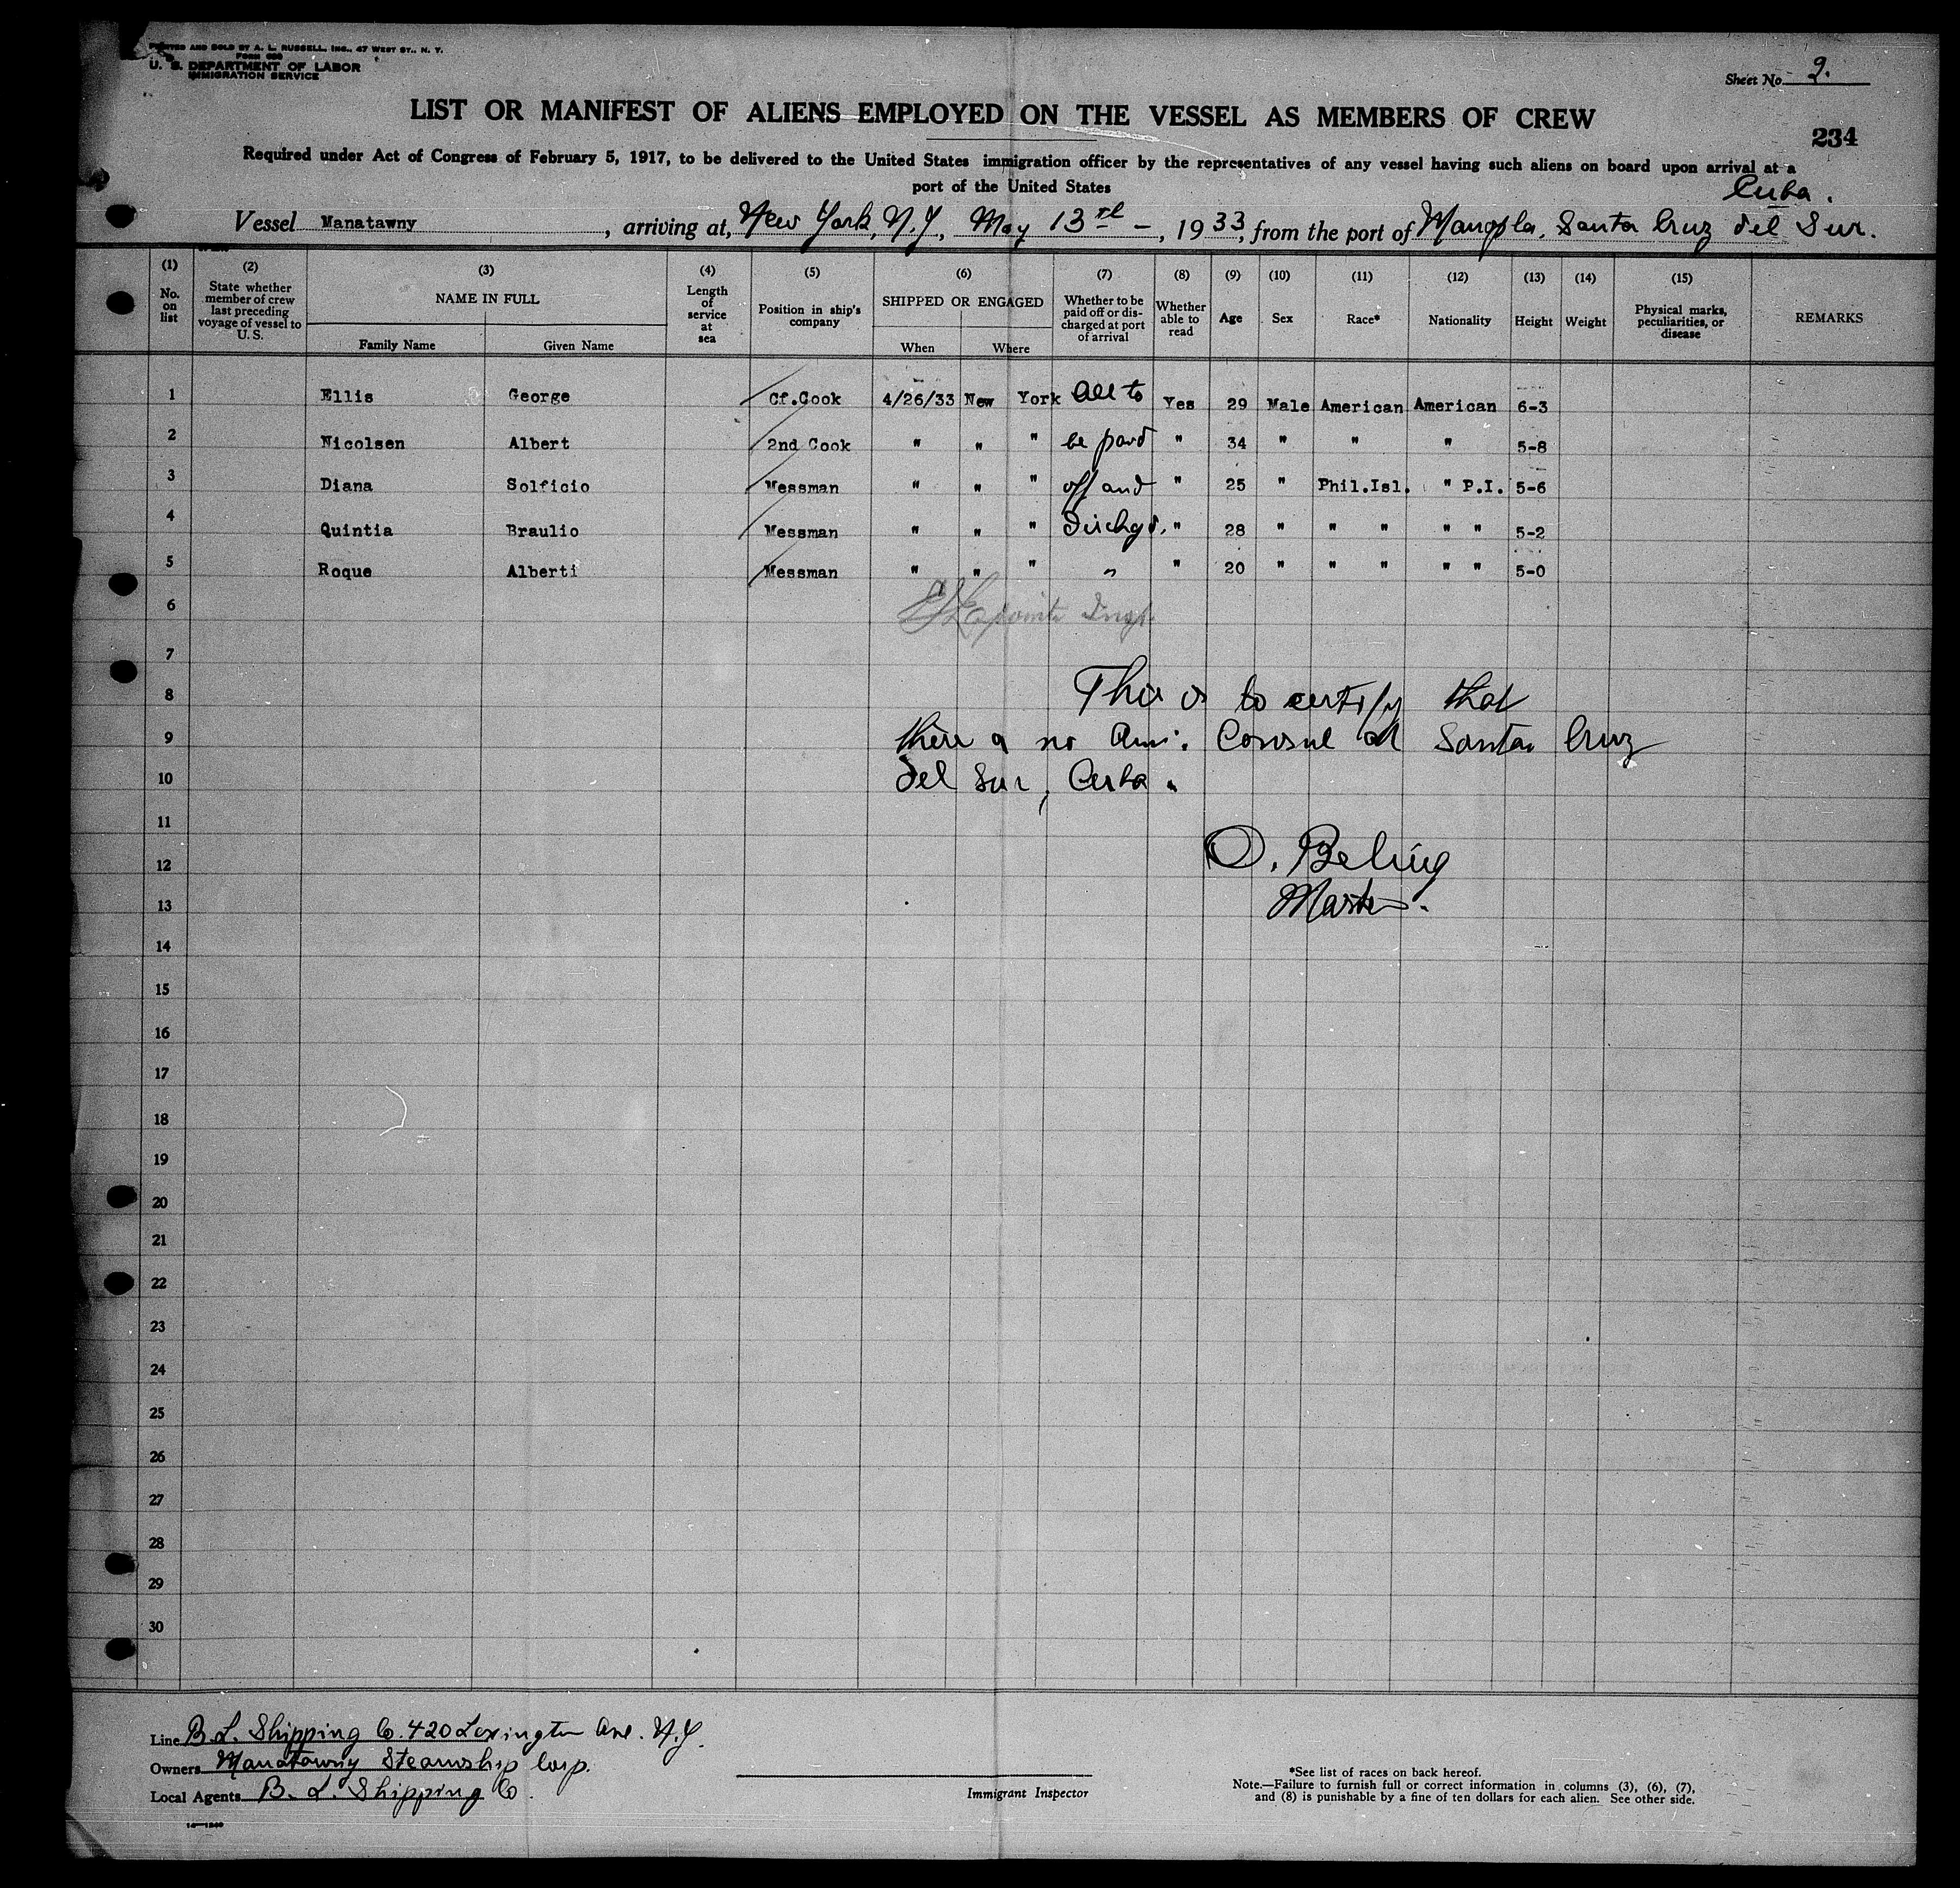 PRINTED AND SOLD BY A. L. RUSSELL, INC., 47 WEST ST., N. Y.
FORM 680
U. S. DEPARTMENT OF LABOR
IMMIGRATION SERVICE
Sheet No. 2.
LIST OR MANIFEST OF ALIENS EMPLOYED ON THE VESSEL AS MEMBERS OF CREW
234
Required under Act of Congress of February 5, 1917, to be delivered to the United States immigration officer by the representatives of any vessel having such aliens on board upon arrival at a
port of the United States
Cuba.
Vessel Manatawny, arriving at, New York, N.Y., May 13th –, 1933, from the port of Manopla, Santa Cruz del Sur.
(1) No. on list (2) State whether member of crew last preceding voyage of vessel to U. S. (3) NAME IN FULL Family Name Given Name (4) Length of service at sea (5) Position in ship's company (6) SHIPPED OR ENGAGED When Where (7) Whether to be paid off or discharged at port of arrival (8) Whether able to read (9) Age (10) Sex (11) Race* (12) Nationality (13) Height (14) Weight (15) Physical marks, peculiarities, or disease REMARKS
1 Ellis George Cf.Cook 4/26/33 New York All to Yes 29 Male American American 6-3
2 Nicolsen Albert 2nd Cook " " " be paid " 34 " " " 5-8
3 Diana Solficio Messman " " " off and " 25 " Phil.Isl. " P.I. 5-6
4 Quintia Braulio Messman " " " Dischgd. " 28 " " " " " 5-2
5 Roque Alberti Messman " " " " " 20 " " " " " 5-0
6
7
8 This is to certify that
9 there is no Am. Consul at Santa Cruz
10 del Sur, Cuba.
11
12 O. Beling
13 Master.
14
15
16
17
18
19
20
21
22
23
24
25
26
27
28
29
30
Line B.L. Shipping Co. 420 Lexington Ave. N.Y.
Owners Manatawny Steamship Corp.
Local Agents B. L. Shipping Co.
Immigrant Inspector
*See list of races on back hereof.
Note.—Failure to furnish full or correct information in columns (3), (6), (7),
and (8) is punishable by a fine of ten dollars for each alien. See other side.
14—1240